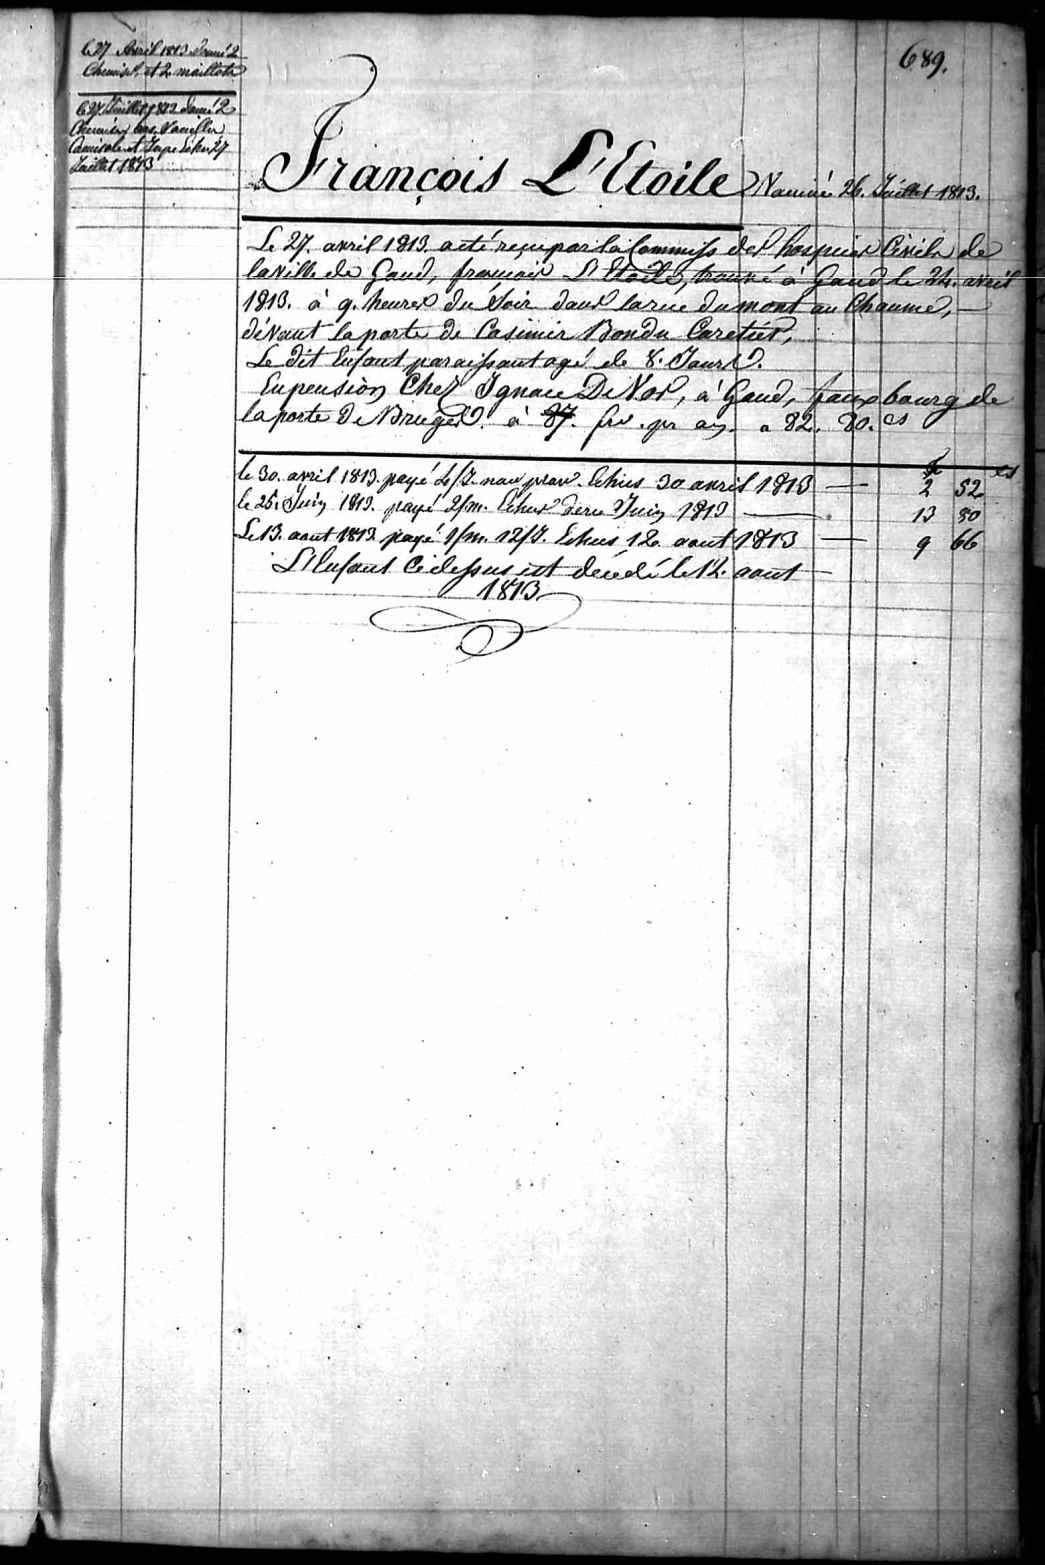 689.
Le 27 Avril 1813 donné 2
Chemises et 2 maillots
Le 27 Juillet 1813 donné 2
Chemises bas
Camisole et Jupe Echu 27
Juillet 1813
François L'Etoile Vacciné 26. Juillet 1813.
Le 27. avril 1813. acté reçu par la Commiss des hospices Civils de
la ville de Gand, françois L'Etoile, trouvé à Gand le 24. avril
1813. à 9. heures du Soir dans la rue du mont au Chaume, —
dévant la porte de Casimir Bondu Caretier,
Le dit Enfant paraissant agé de 8. Jours.
En pension Chez Ignace De Vos, à Gand, fauxbourg de
la porte De Bruges. à 87. frs. pr an. a 82. 80. cs
f cs
le 30. avril 1813. payé 4/J. Echus 30 avril 1813 — 2 52
le 25. Juin 1813. payé 2/m. Echus dern Juin 1813 — 13 80
Le 13. aout 1813. payé 1/m. 12/J. Echus 12 aout 1813 — 9 66
L'Enfant Ce dessus est décédé le 12. aout —
1813